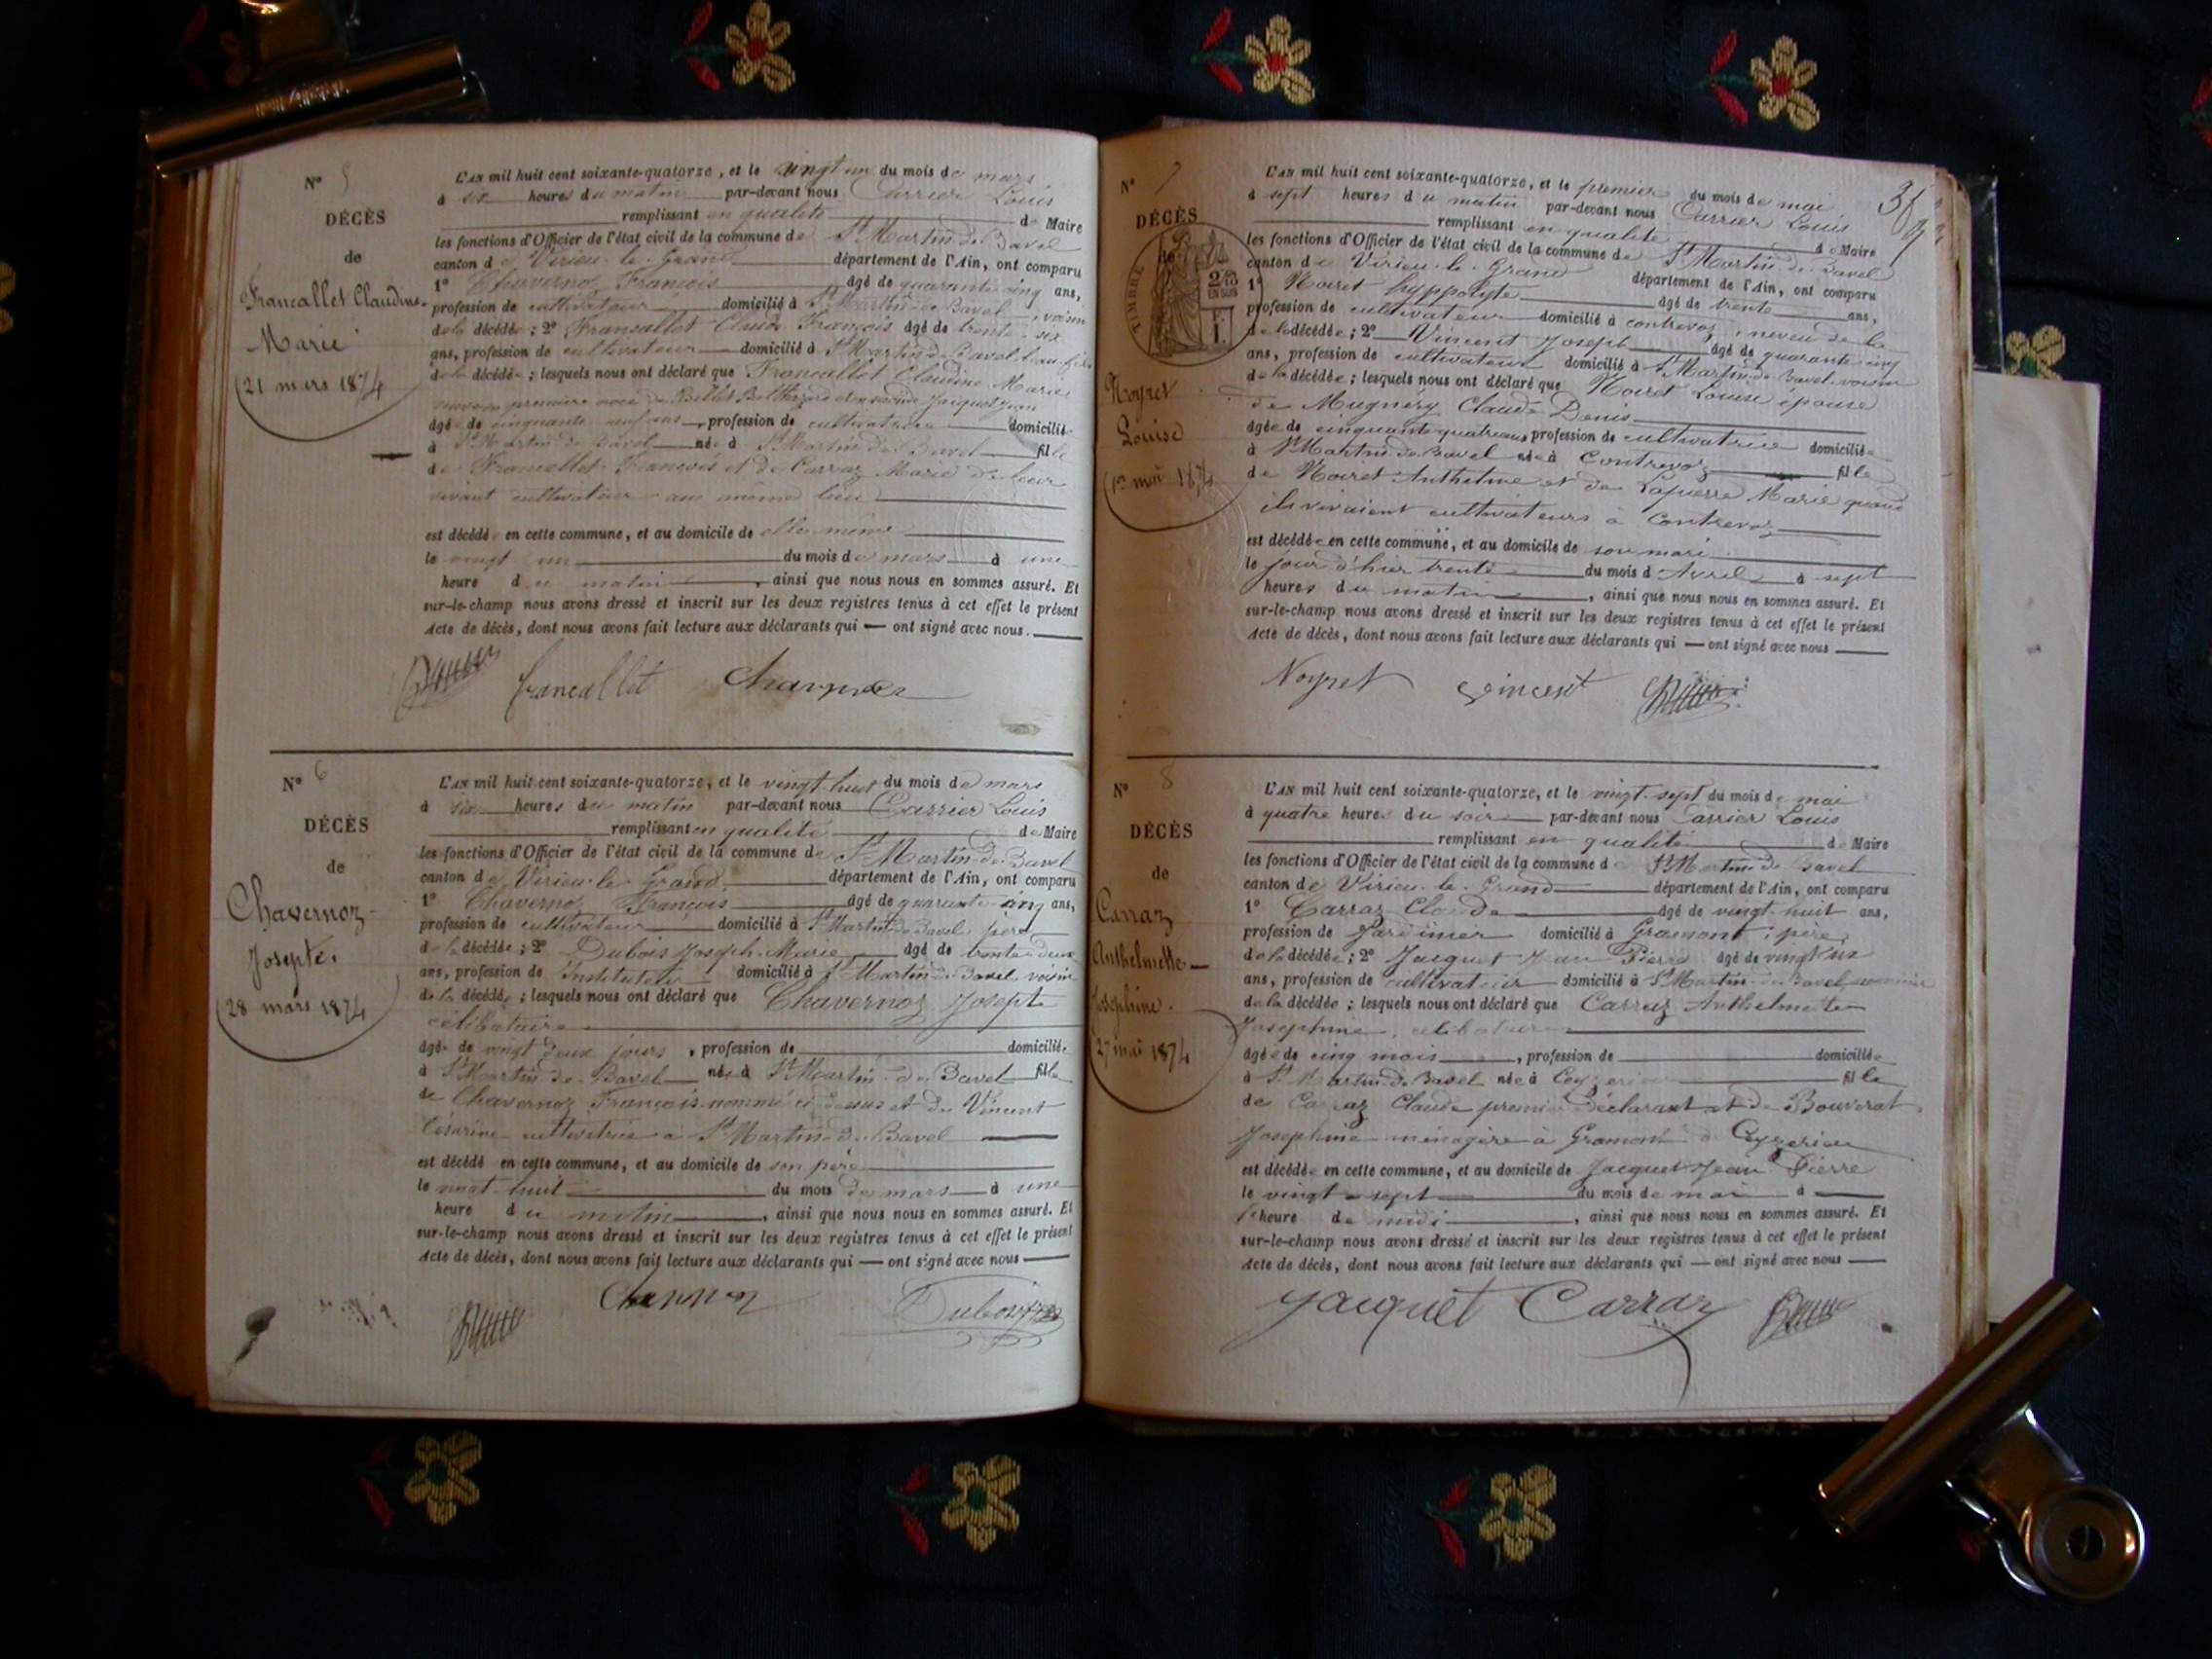 N° 5
DÉCÈS
de
Francallet Claudine
Marie
21 mars 1874
L'AN mil huit cent soixante-quatorze, et le vingt un du mois de mars
à six heures du matin par-devant nous Carrier Louis
remplissant en qualité de Maire
les fonctions d'Officier de l'état civil de la commune de St Martin de Bavel
canton de Virieu-le-Grand département de l'Ain, ont comparu
1° Chavernoz François âgé de quarante cinq ans,
profession de cultivateur domicilié à St Martin de Bavel, voisin
de la décédée; 2° Francallet Claude François âgé de trente-six
ans, profession de cultivateur domicilié à St Martin de Bavel beau-fils
de la décédée; lesquels nous ont déclaré que Francallet Claudine Marie
première noce de Balthazard et en seconde Jacquet Jean
âgée de cinquante neuf ans, profession de cultivatrice domiciliée
à St Martin de Bavel née à St Martin de Bavel fille
de Francallet François et de Carraz Marie de leur
vivant cultivateur au même lieu
est décédée en cette commune, et au domicile de elle même
le vingt un du mois de mars à une
heure du matin, ainsi que nous nous en sommes assuré. Et
sur-le-champ nous avons dressé et inscrit sur les deux registres tenus à cet effet le présent
Acte de décès, dont nous avons fait lecture aux déclarants qui — ont signé avec nous.
francallet Chavernoz
N° 6
DÉCÈS
de
Chavernoz
Josepte.
28 mars 1874
L'AN mil huit cent soixante-quatorze, et le vingt-huit du mois de mars
à six heures du matin par-devant nous Carrier Louis
remplissant en qualité de Maire
les fonctions d'Officier de l'état civil de la commune de St Martin de Bavel
canton de Virieu-le-Grand département de l'Ain, ont comparu
1° Chavernoz François âgé de quarante cinq ans,
profession de cultivateur domicilié à St Martin de Bavel, père
de la décédée; 2° Dubois Joseph Marie âgé de trente deux
ans, profession de Instituteur domicilié à St Martin de Bavel voisin
de la décédée; lesquels nous ont déclaré que Chavernoz Josepte
célibataire
âgée de vingt deux jours, profession de domiciliée
à St Martin de Bavel née à St Martin de Bavel fille
de Chavernoz François nommé ci dessus et de Vincent
Césarine cultivatrice à St Martin de Bavel
est décédé en cette commune, et au domicile de son père
le vingt huit du mois de mars à une
heure du matin, ainsi que nous nous en sommes assuré. Et
sur-le-champ nous avons dressé et inscrit sur les deux registres tenus à cet effet le présent
Acte de décès, dont nous avons fait lecture aux déclarants qui — ont signé avec nous
Dubois
N° 7
DÉCÈS
TIMBRE
Noyret
Louise
1er mai 1874
L'AN mil huit cent soixante-quatorze, et le premier du mois de mai
à sept heures du matin par-devant nous Carrier Louis
remplissant en qualité de Maire
les fonctions d'Officier de l'état civil de la commune de St Martin de Bavel
canton de Virieu-le-Grand département de l'Ain, ont comparu
1° Noiret hyppolyte âgé de trente ans,
profession de cultivateur domicilié à contrevoz, neveu de la
de la décédée; 2° Vincent Joseph âgé de quarante cinq
ans, profession de cultivateur domicilié à St Martin de Bavel voisin
de la décédée; lesquels nous ont déclaré que Noiret Louise épouse
de Mugnéry Claude Denis
âgée de cinquante quatre ans profession de cultivatrice domiciliée
à St Martin de Bavel née à Contrevoz fille
de Noiret Anthelme et de Lapierre Marie quand
ils vivaient cultivateurs à Contrevoz
est décédée en cette commune, et au domicile de son mari
le jour d'hier trente du mois d'Avril à sept
heures du matin, ainsi que nous nous en sommes assuré. Et
sur-le-champ nous avons dressé et inscrit sur les deux registres tenus à cet effet le présent
Acte de décès, dont nous avons fait lecture aux déclarants qui — ont signé avec nous
Noyret vincent
N° 8
DÉCÈS
de
Carraz
Anthelmette
Joséphine.
27 mai 1874
L'AN mil huit cent soixante-quatorze, et le vingt-sept du mois de mai
à quatre heures du soir par-devant nous Carrier Louis
remplissant en qualité de Maire
les fonctions d'Officier de l'état civil de la commune de St Martin de Bavel
canton de Virieu-le-Grand département de l'Ain, ont comparu
1° Carraz Claude âgé de vingt-huit ans,
profession de domicilié à Gramont, père
de la décédée; 2° Jacquet Jean Pierre âgé de vingt six
ans, profession de cultivateur domicilié à St Martin de Bavel
de la décédée; lesquels nous ont déclaré que Carraz Anthelmette
Josephine, célibataire
âgée de cinq mois, profession de domiciliée
à St Martin de Bavel née à Ceyzerieu fille
de Carraz Claude premier déclarant et de Bouverat
Josephine ménagère à Gramont de Ceyzerieu
est décédée en cette commune, et au domicile de Jacquet Jean Pierre
le vingt-sept du mois de mai à
heure de midi, ainsi que nous nous en sommes assuré. Et
sur-le-champ nous avons dressé et inscrit sur les deux registres tenus à cet effet le présent
Acte de décès, dont nous avons fait lecture aux déclarants qui — ont signé avec nous
Jacquet Carraz